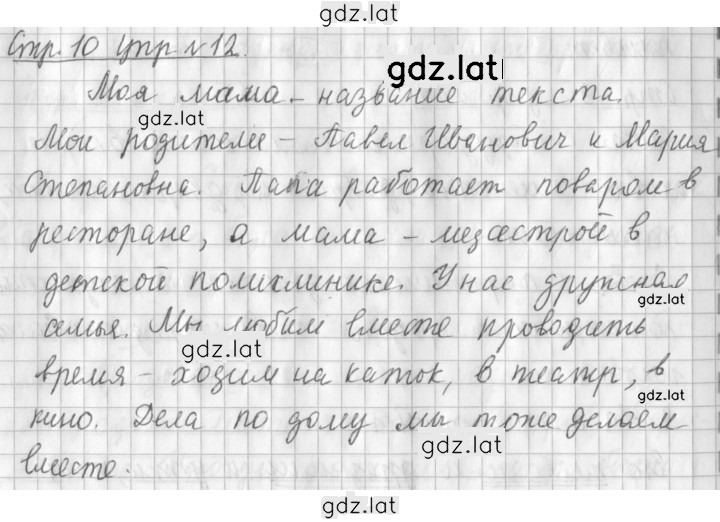 gdz.lat
Стр. 10 упр №12.
gdz.lat
Моя мама – название текста.
gdz.lat
Мои родители – Павел Иванович и Мария
Степановна. Папа работает поваром в
ресторане, а мама – медсестрой в
детской поликлинике. У нас дружная
gdz.lat
семья. Мы любим вместе проводить
gdz.lat
время – ходим на каток, в театр, в
gdz.lat
кино. Дела по дому мы тоже делаем
gdz.lat
вместе.
gdz.lat